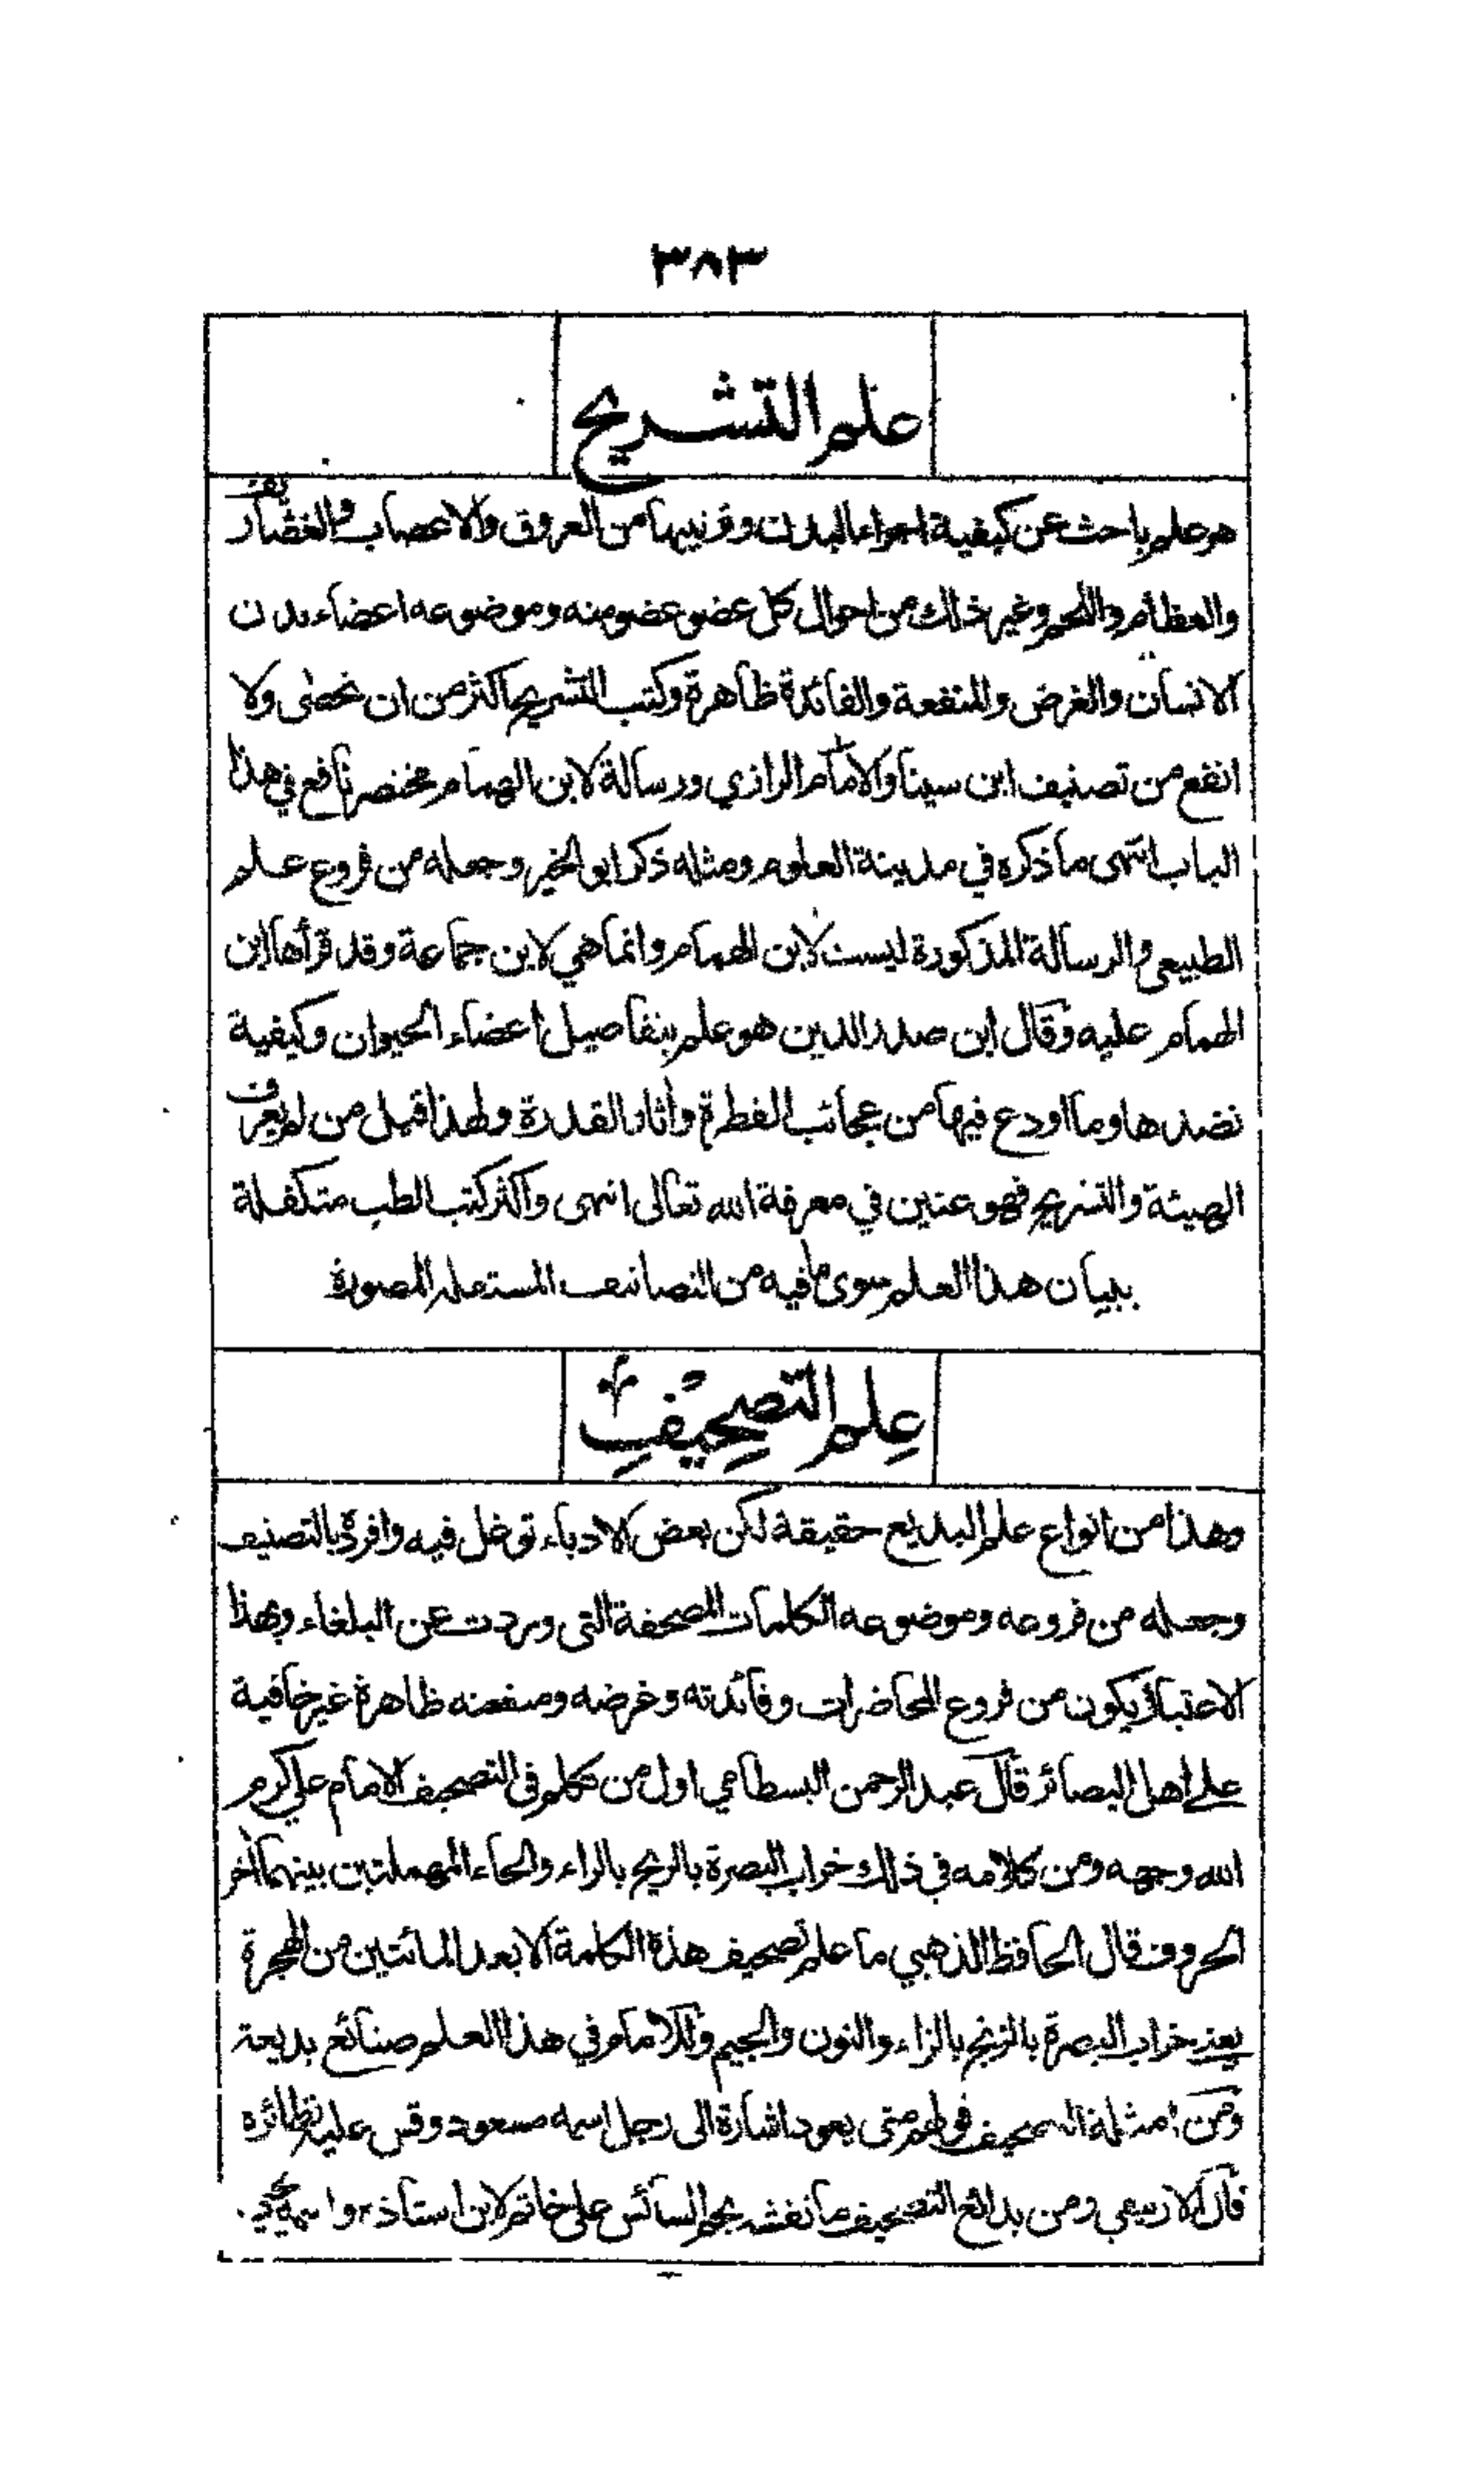 ٣٨٣
علم التشريح
هو علم باحث عن كيفية اجزاء البدن وترتيبها من العروق والاعصاب والغضاريف
والعظام واللحم وغير ذلك من احوال كل عضو عضو منه وموضوعه اعضاء بدن
الانسان والغرض والمنفعة والفائدة ظاهرة وكتب التشريح اكثر من ان تحصى ولا
انفع من تصنيف ابن سينا والامام الرازي ورسالة لابن الهمام مختصر نافع في هذا
الباب انتهى ما ذكره في مدينة العلوم ومثله ذكر ابو الخير وجعله من فروع علم
الطبيعي والرسالة المذكورة ليست لابن الهمام وانما هي لابن جماعة وقد قرأها ابن
الهمام عليه وقال ابن صدر الدين هو علم بتفاصيل اعضاء الحيوان وكيفية
نضدها وما اودع فيها من عجائب الفطرة وآثار القدرة ولهذا قيل من لم يعرف
الهيئة والتشريح فهو عنين في معرفة الله تعالى انتهى واكثر كتب الطب متكفلة
ببيان هذا العلم سوى ما فيه من التصانيف المستقلة المصورة
علم التصحيف
وهذا من انواع علم البديع حقيقة لكن بعض الادباء توغل فيه وافرده بالتصنيف
وجعله من فروعه وموضوعه الكلمات المصحفة التي وردت عن البلغاء وبهذا
الاعتبار يكون من فروع المحاضرات وفائدته وغرضه ومنفعته ظاهرة غير خافية
على اهل البصائر قال عبد الرحمن البسطامي اول من تكلم في التصحيف الامام علي كرم
الله وجهه ومن كلامه في ذلك خراب البصرة بالريح بالراء والحاء المهملتين بينهما آخر
الحروف قال الحافظ الذهبي ما علم تصحيف هذه الكلمة الا بعد المائتين من الهجرة
يعني خراب البصرة بالزنج بالزاء والنون والجيم وللامام في هذا العلم صنائع بديعة
ومن امثلة التصحيف قولهم متى يعود اشارة الى رجل اسمه مسعود وقس عليه نظائره
قال الاربعي ومن بدائع التصحيف ما نقشه على خاتم لابن استاذه واسمه يحيى